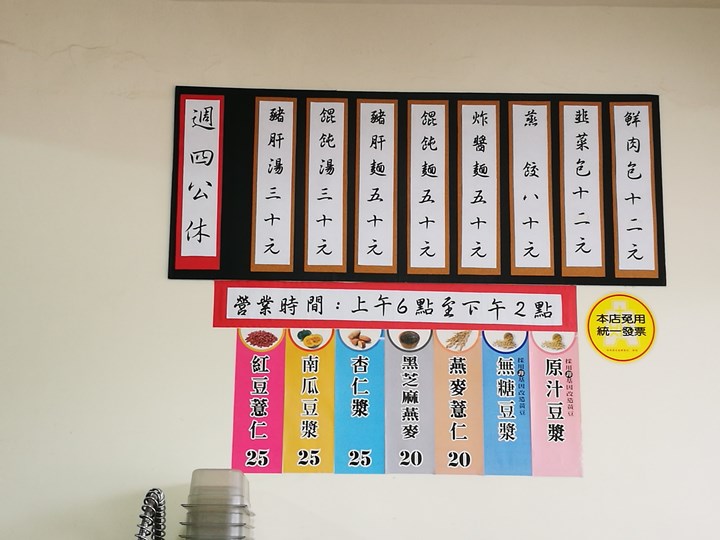 鮮肉包十二元
韭菜包十二元
蒸餃八十元
炸醬麵五十元
餛飩麵五十元
豬肝麵五十元
餛飩湯三十元
豬肝湯三十元
週四公休
營業時間：上午6點至下午2點
本店免用
統一發票
紅豆薏仁
25
南瓜豆漿
25
杏仁漿
25
黑芝麻燕麥
20
燕麥薏仁
20
採用非基因改造黃豆
無糖豆漿
採用非基因改造黃豆
原汁豆漿